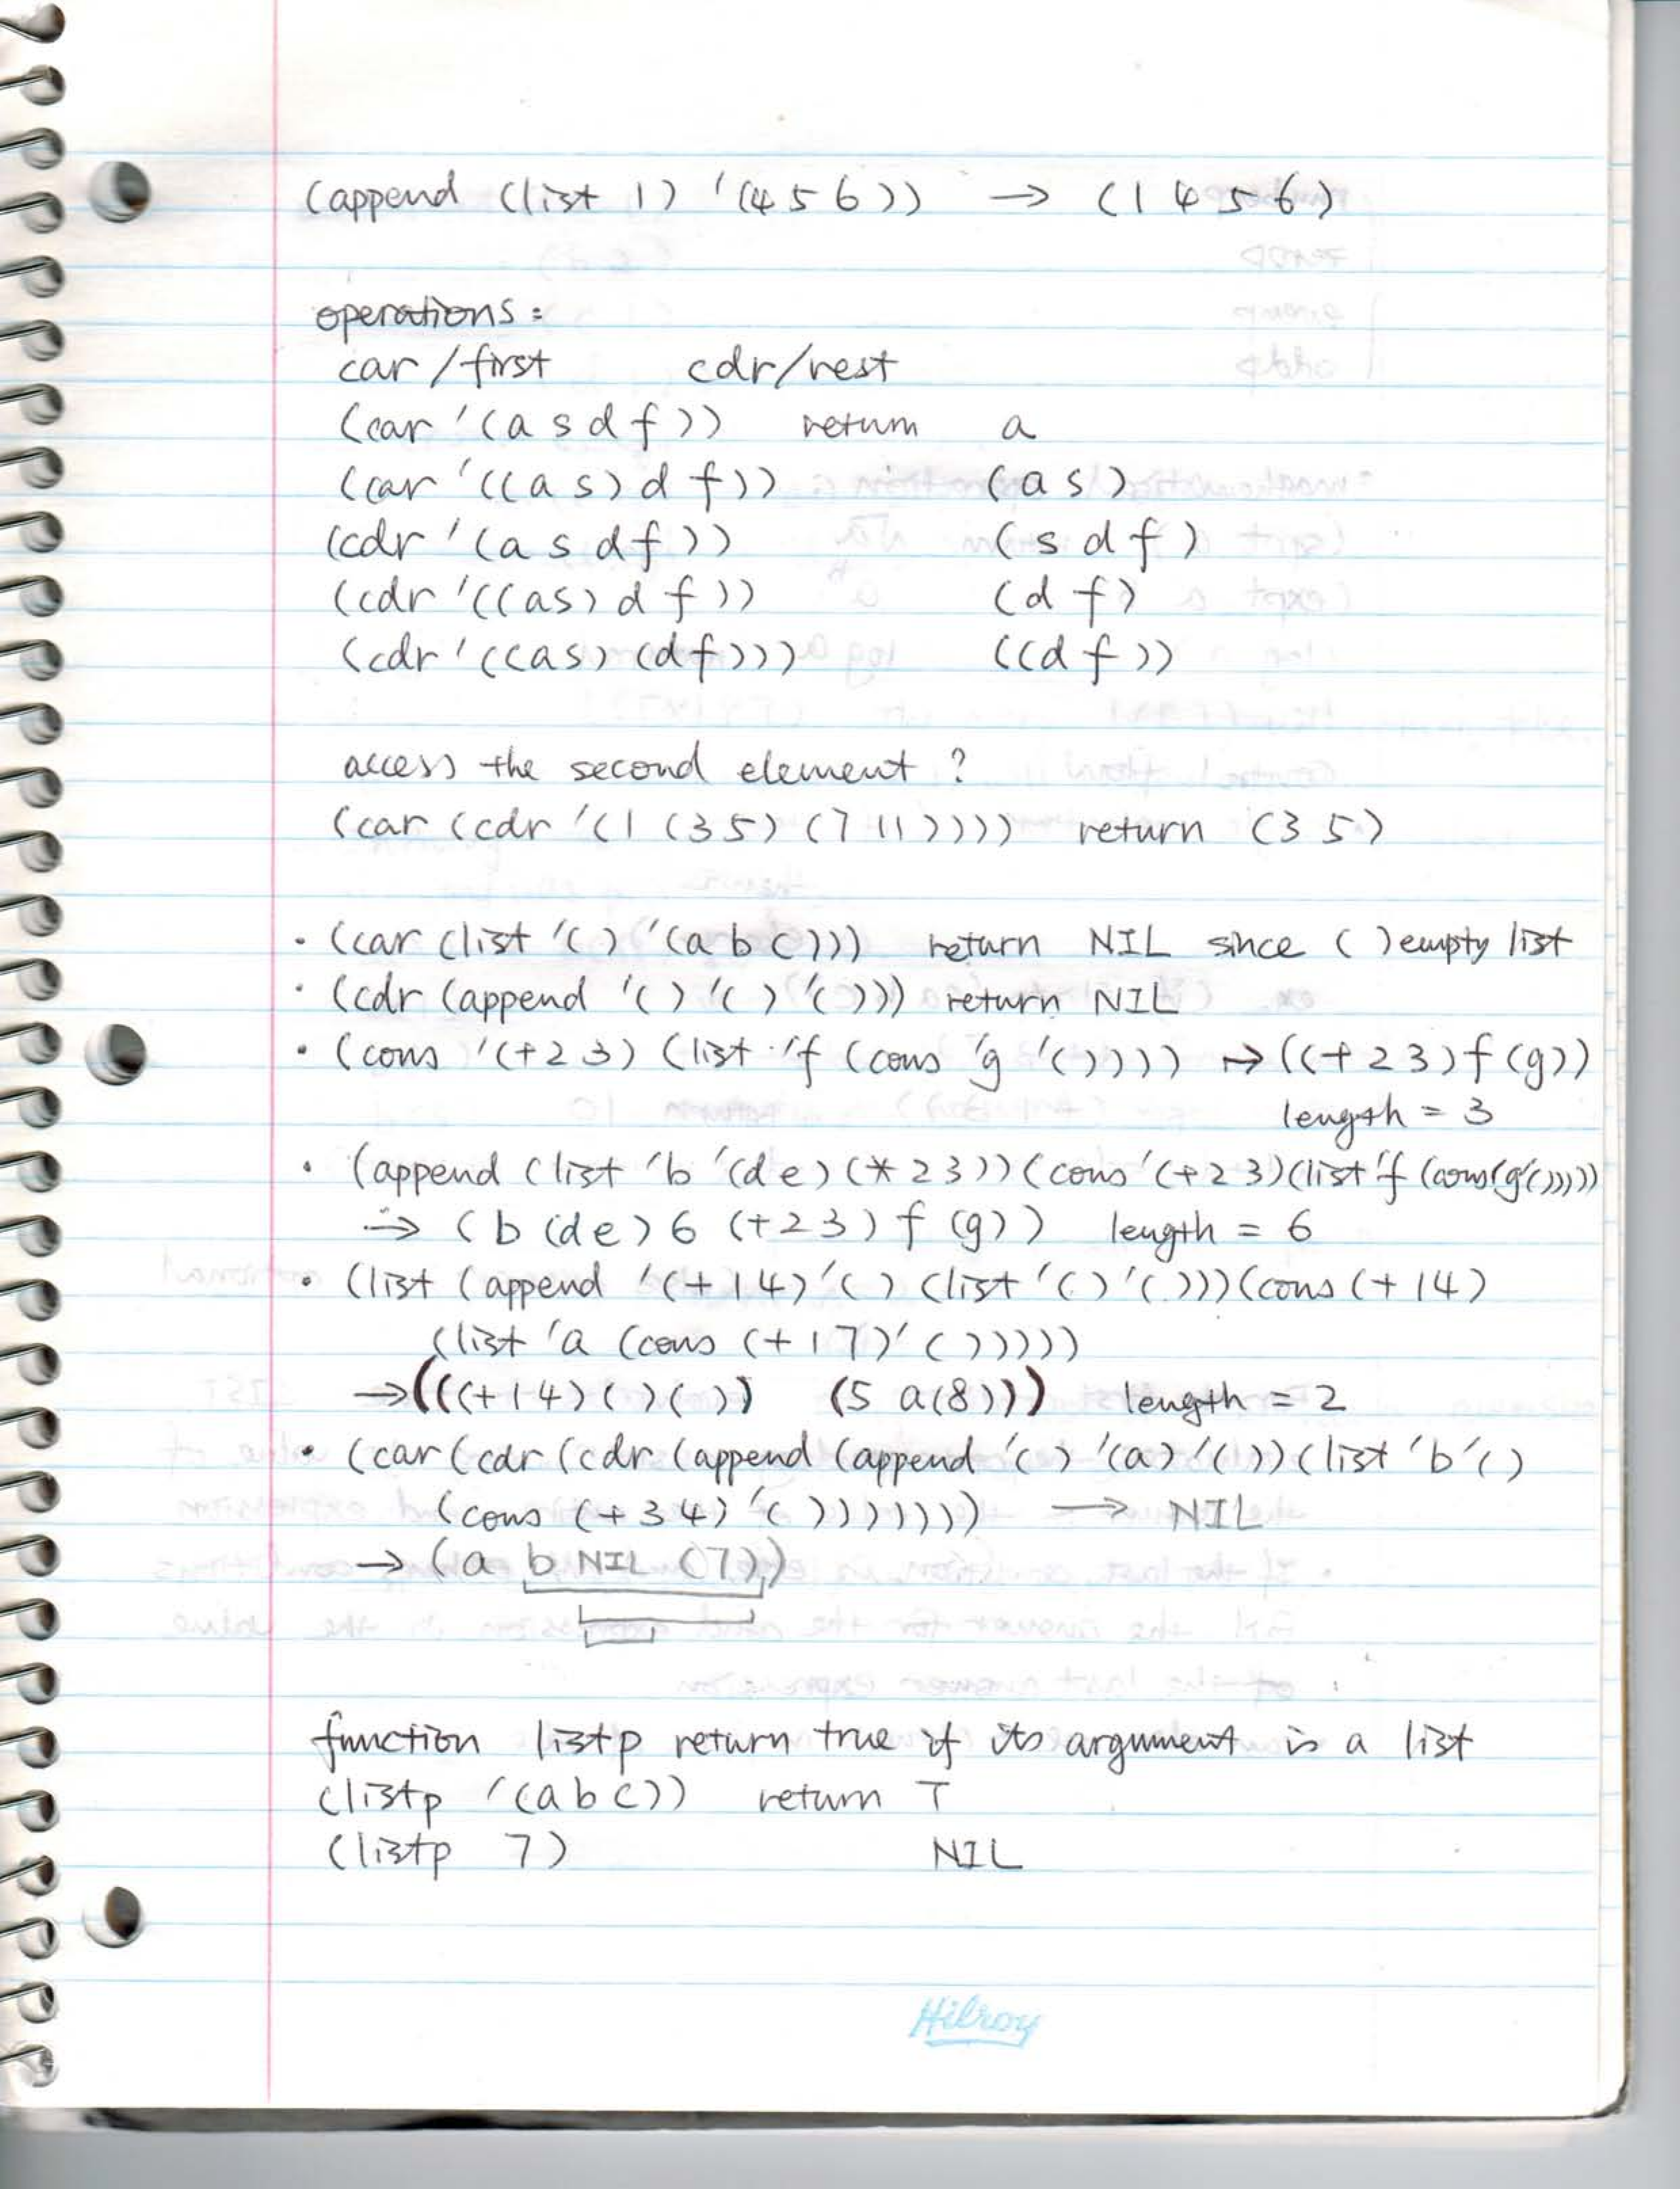 (append (list 1) '(4 5 6)) → (1 4 5 6)
operations:
car/first cdr/rest
(car '(a s d f)) return a
(car '((a s) d f)) (a s)
(cdr '(a s d f)) (s d f)
(cdr '((as) d f)) (d f)
(cdr '((as) (df))) ((d f))
access the second element ?
(car (cdr '(1 (3 5) (7 11)))) return (3 5)
• (car (list '() '(a b c))) return NIL since ( ) empty list
• (cdr (append '() '() '())) return NIL
• (cons '(+ 2 3) (list 'f (cons 'g '()))) → ((+ 2 3) f (g))
length = 3
• (append (list 'b '(de) (* 2 3)) (cons '(+ 2 3) (list 'f (cons 'g '()))))
→ (b (de) 6 (+ 2 3) f (g)) length = 6
• (list (append '(+ 1 4) '() (list '() '())) (cons (+ 1 4)
(list 'a (cons (+ 1 7) '()))))
→ (((+ 1 4) ( ) ( )) (5 a (8))) length = 2
• (car (cdr (cdr (append (append '() '(a) '()) (list 'b '()
(cons (+ 3 4) '())))))) → NIL
→ (a b NIL (7))
function listp return true if its argument is a list
(listp '(a b c)) return T
(listp 7) NIL
Hilroy